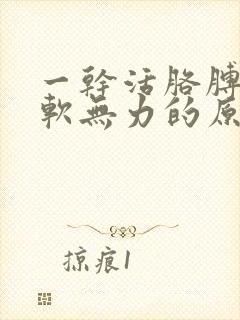 一幹活胳膊
軟無力的原
掠痕1